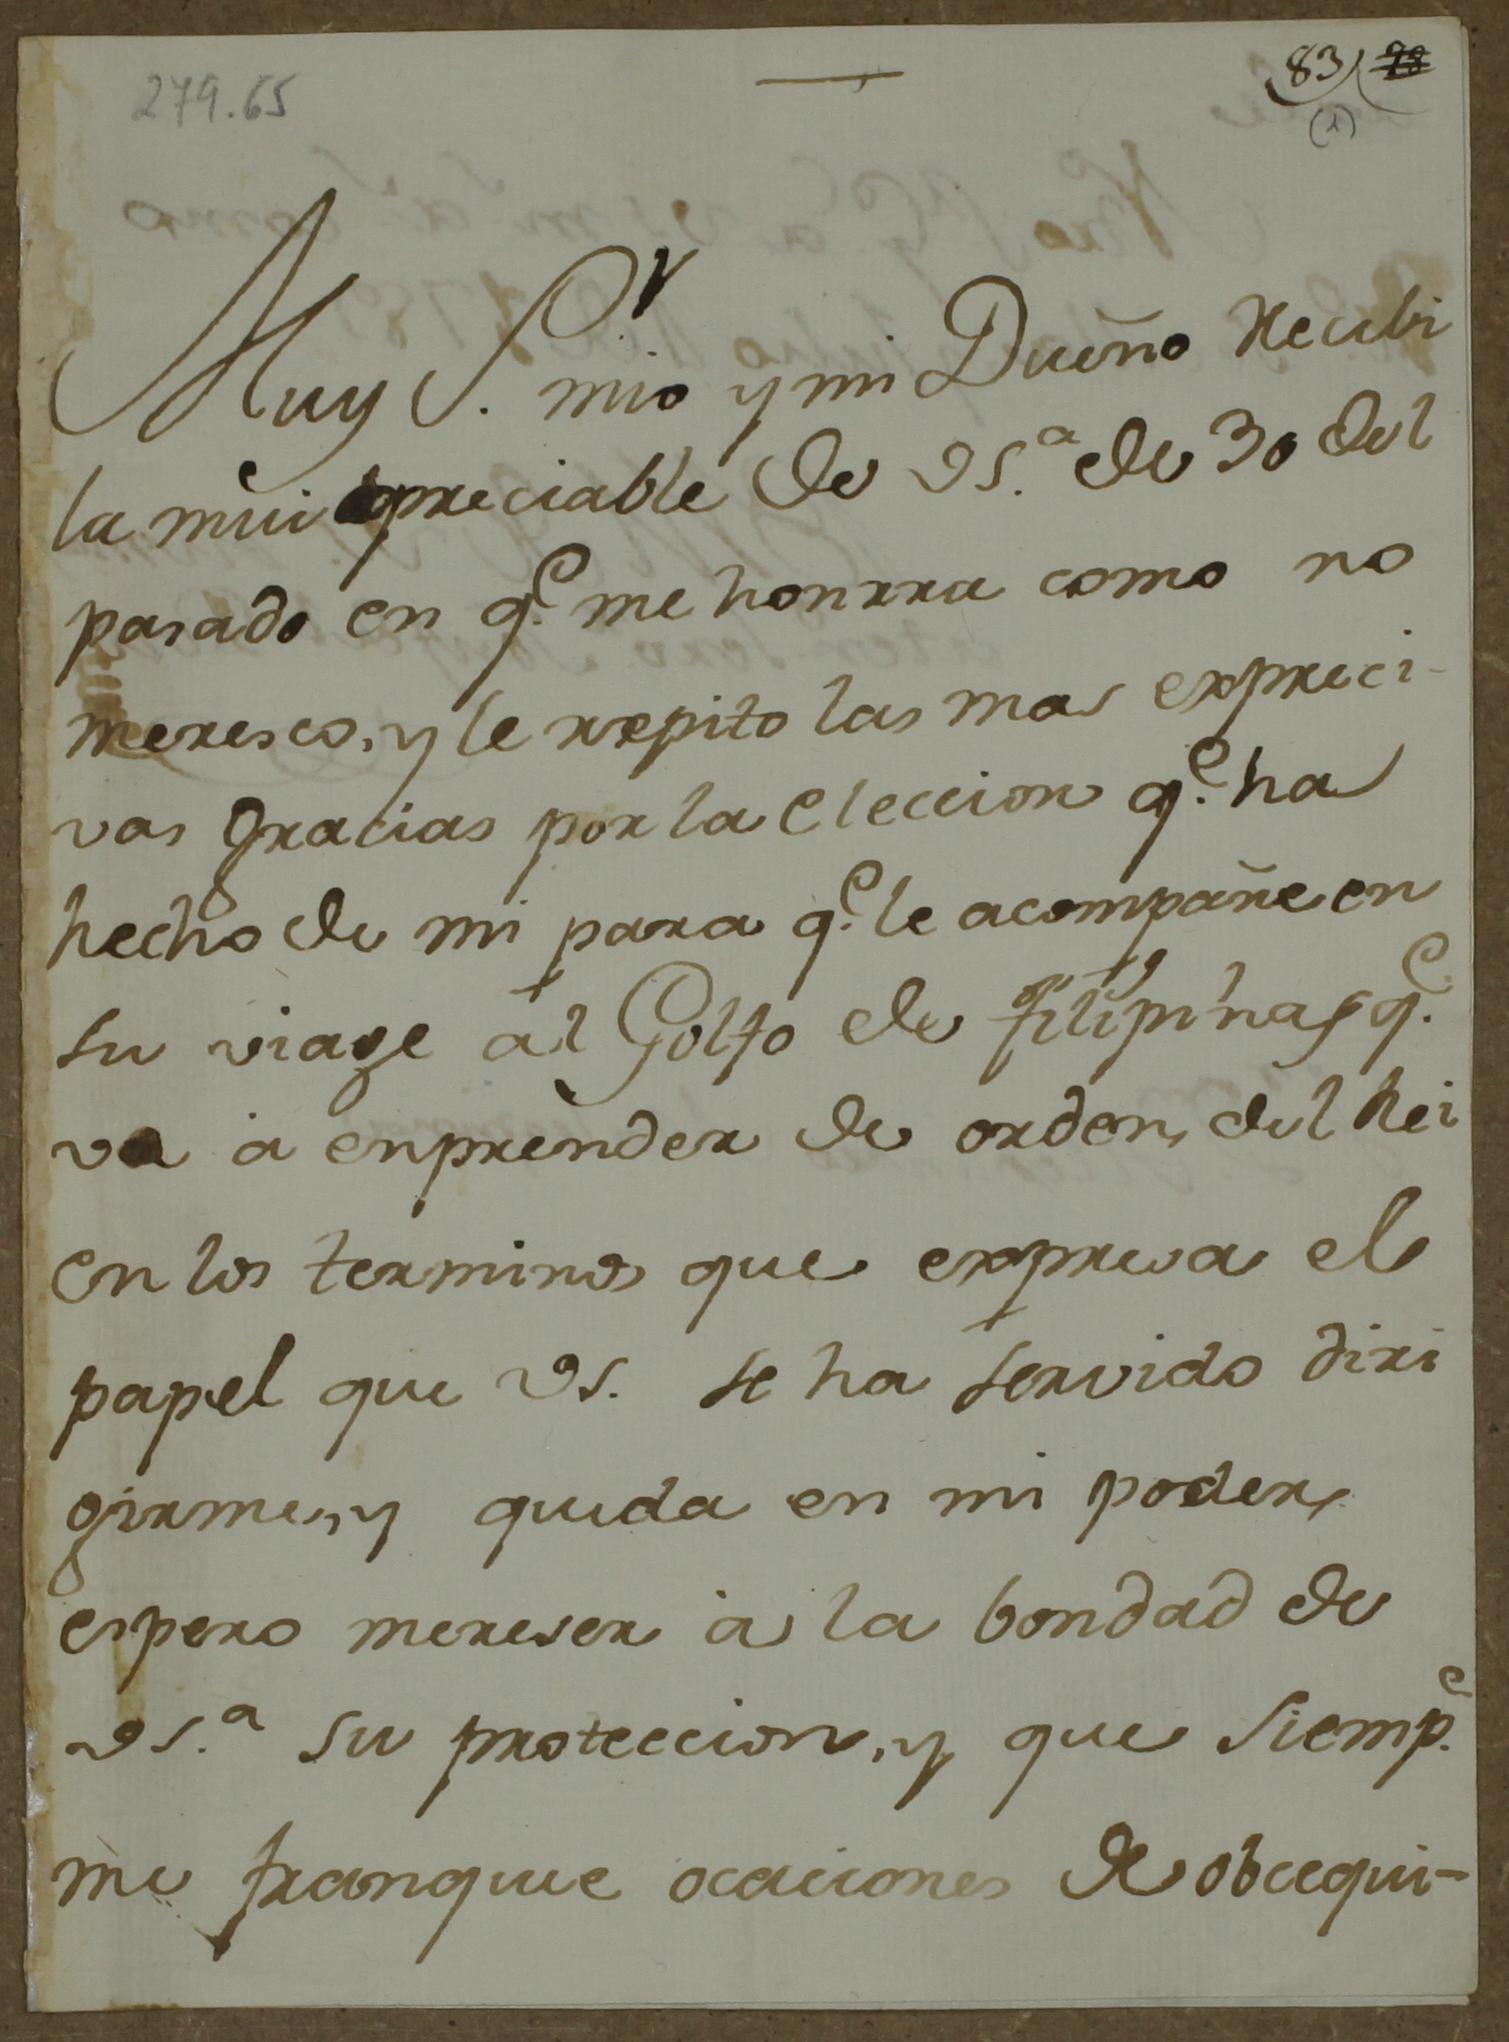 279.65
83) 78
(1)
Muy S.r mio y mi Dueño Recibi
la mui apreciable de VS.a de 30 del
pasado en q.e me honrra como no
meresco, y le repito las mas expreci-
vas gracias por la eleccion q.e ha
hecho de mi para q.e le acompañe en
su viage al Golfo de filipinas q.e
va à enprender de orden del Rei
en los terminos que expresa el
papel que VS. se ha servido diri
girme, y queda en mi poder,
espero mereser à la bondad de
VS.a su proteccion, y que siemp.e
me franquee ocaciones de obcequi-